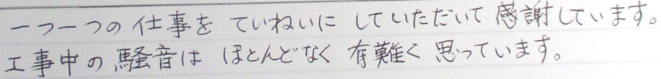 一つ一つの仕事を ていねいに していただいて 感謝しています。
工事中の騒音は ほとんどなく 有難く 思っています。